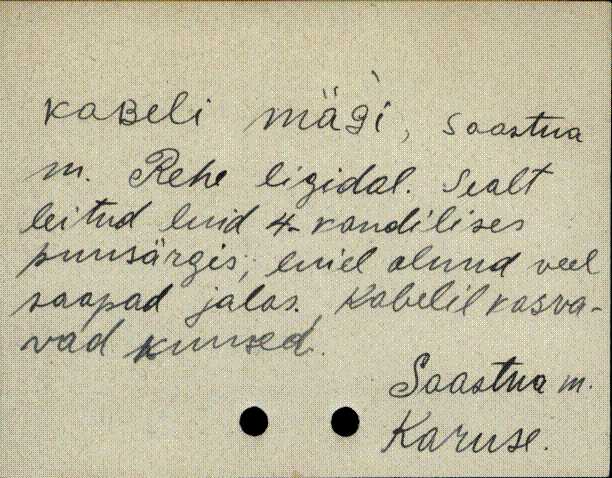 Kabeli mägi, Saastna
m. Rehe ligidal. Sealt
leitud luid 4-kandilises
puusärgis, luiel olnud veel
saapad jalas. Kabelil kasva-
vad kuused.
Saastna m.
Karuse.